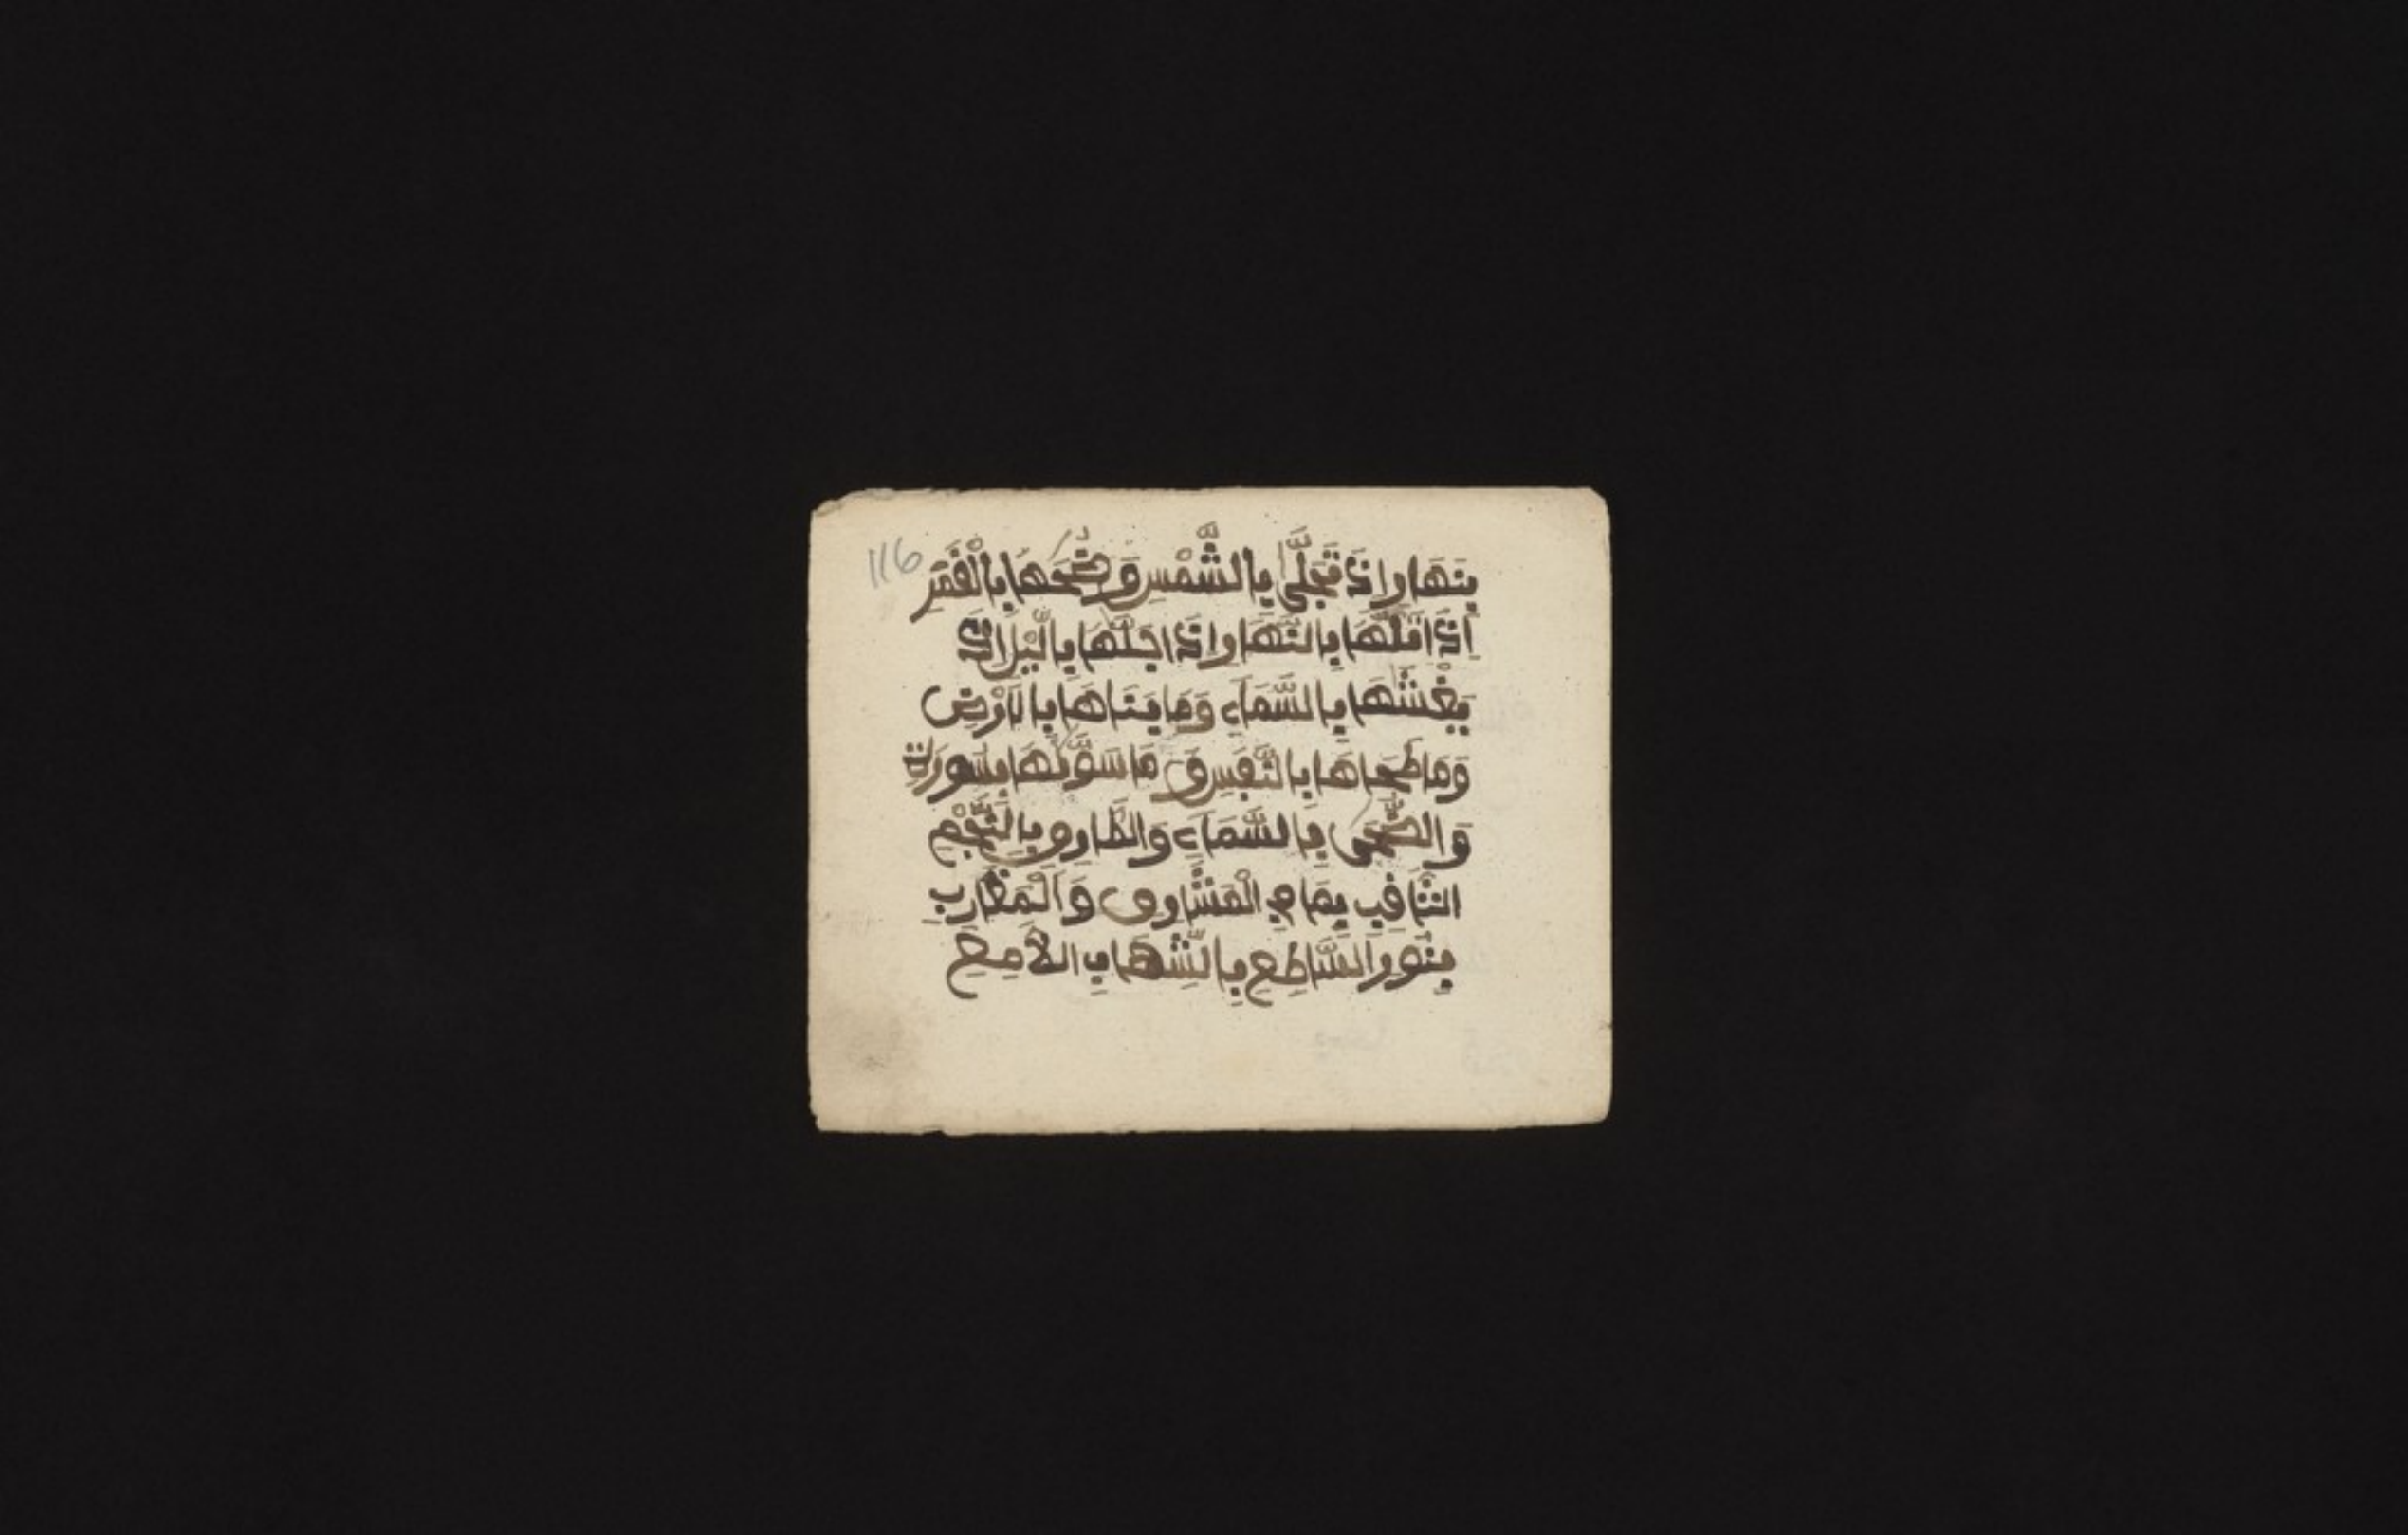 بِنَهَارِ إِذَ تَجَلَّى بِالشَّمْسِ وَضُحَهَا بِالْقَمَرِ
إِذَا تَلَّهَا بِالنَّهَارِ إِذَا جَلَّهَا بِالَّيْلِ إِذَ
يَغْشَّهَا بِالسَّمَاءِ وَمَا بَنَاهَا بِالَارْضِ
وَمَا طَحَاهَا بِالنَّفْسِ وَمَا سَوَّىٰهَا بِسُورَةِ
وَالضُّحَى بِالسَّمَاءِ وَالطَّارِقِ بِالنَّجْمِ
الثَّاقِبِ بِمَا فِي الْمَشَّارِقِ وَالْمَغَارِبِ
بِنُورِ السَّاطِعِ بِالشِّهَابِ الَّامِعِ
116